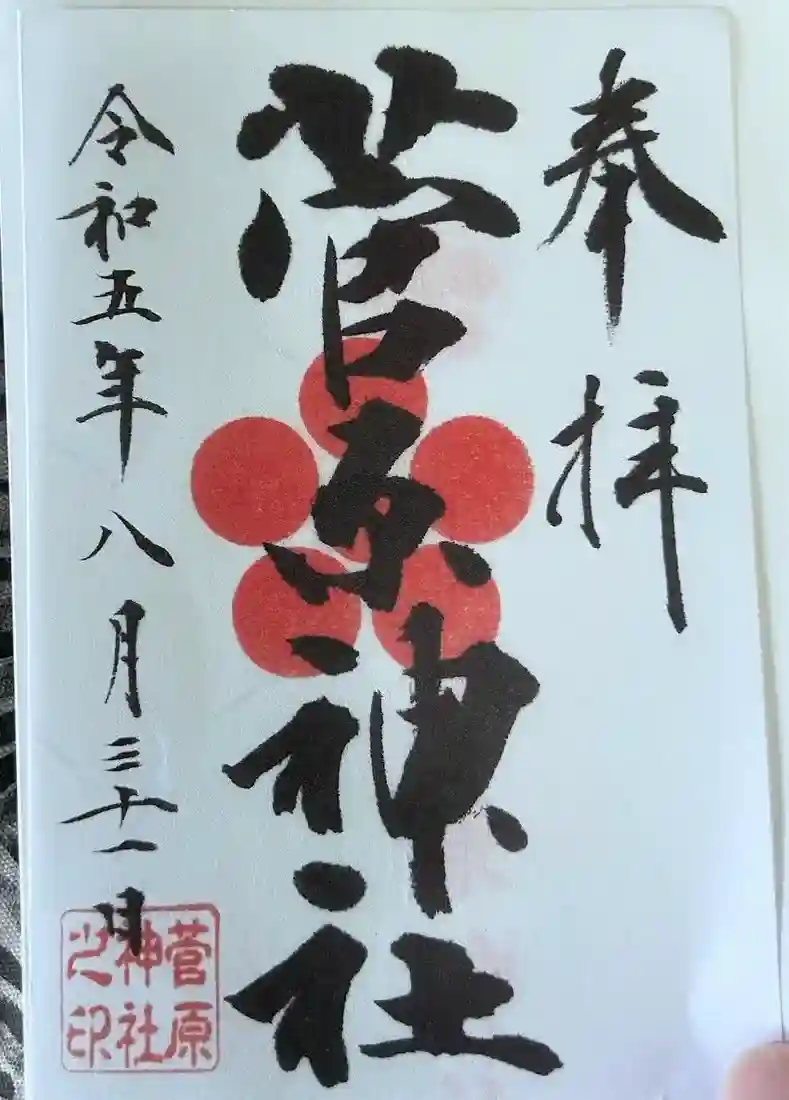 奉拝
菅原神社
令和五年八月三十一日
菅原
神社
之印